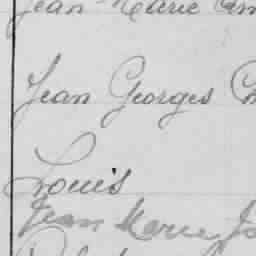 Jean Marie
Jean Georges
Louis
Jean Marie